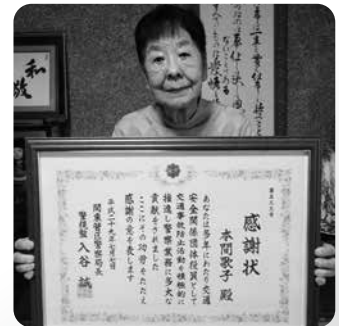 感謝状
本間歌子 殿
あなたは多年にわたり交通
安全関係団体役員として
交通事故防止活動を積極的に
推進し警察業務に多大な
貢献をされました
ここにその功労をたたえ
感謝の意を表します
平成二十九年
関東管区警察局長
警視監 入谷 誠
和敬